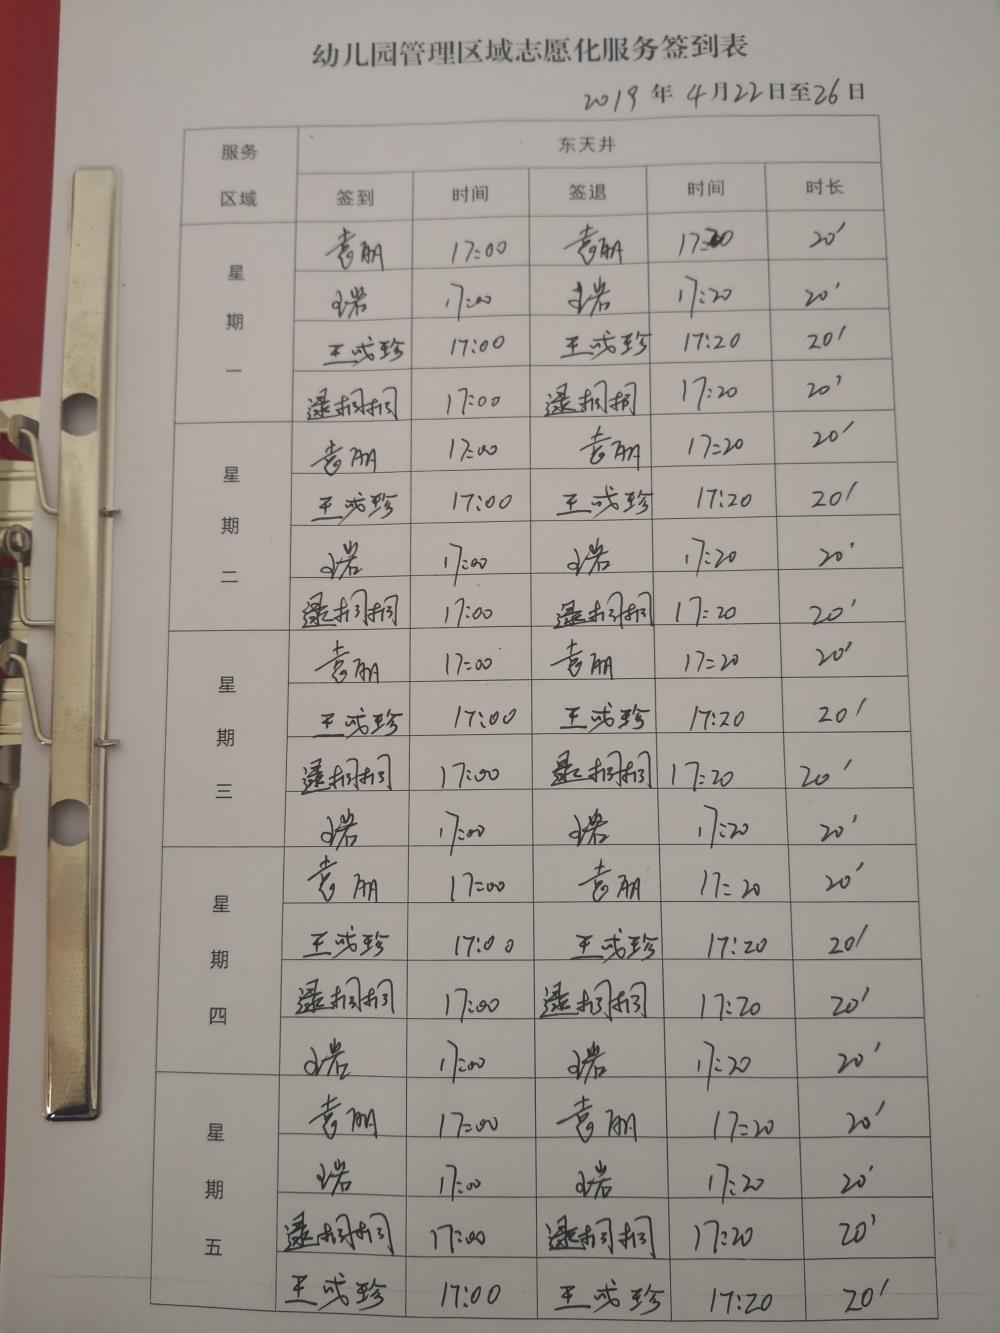 幼儿园管理区域志愿化服务签到表
2019年4月22日至26日
服务区域 东天井
签到 时间 签退 时间 时长
星期一
袁朋 17:00 袁朋 17:20 20'
17:00 17:20 20'
王成珍 17:00 王成珍 17:20 20'
17:00 17:20 20'
星期二
袁朋 17:00 袁朋 17:20 20'
王成珍 17:00 王成珍 17:20 20'
17:00 17:20 20'
17:00 17:20 20'
星期三
袁朋 17:00 袁朋 17:20 20'
王成珍 17:00 王成珍 17:20 20'
17:00 17:20 20'
17:00 17:20 20'
星期四
袁朋 17:00 袁朋 17:20 20'
王成珍 17:00 王成珍 17:20 20'
17:00 17:20 20'
17:00 17:20 20'
星期五
袁朋 17:00 袁朋 17:20 20'
17:00 17:20 20'
17:00 17:20 20'
王成珍 17:00 王成珍 17:20 20'